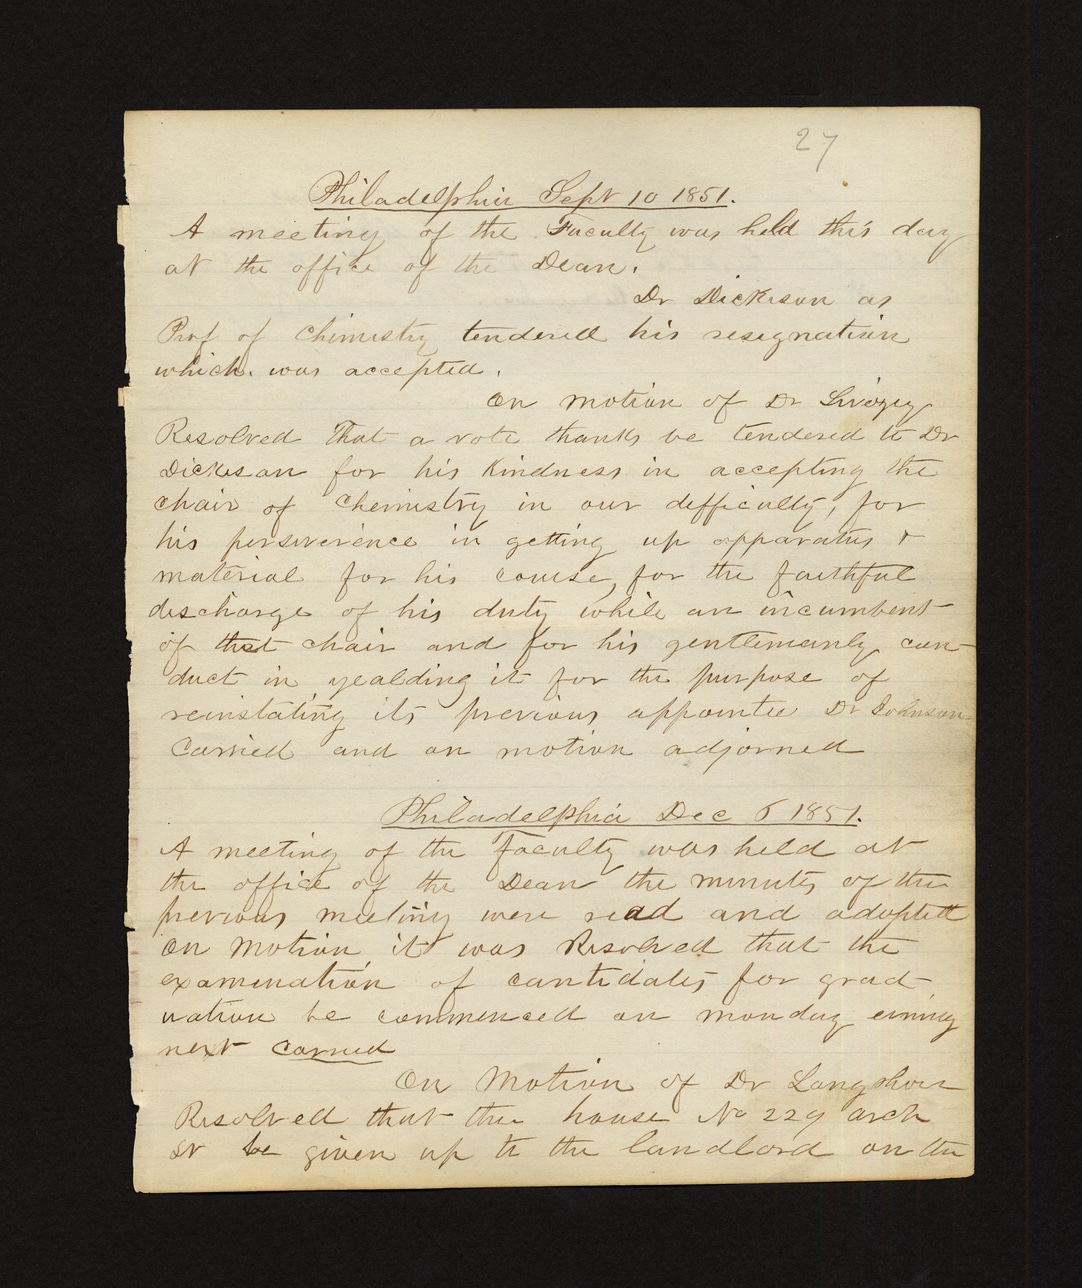 27
Philadelphia Sept 10 1851.
A meeting of the Faculty was held this day
at the office of the Dean.
Dr Dickeson as
Prof of Chimistry tendered his resignation
which was accepted.
On motion of Dr Livezey
Resolved That a vote thanks be tendered to Dr
Dickeson for his kindness in accepting the
chair of Chemistry in our difficulty, for
his perseverence in getting up apparatus &
material for his course, for the faithful
discharge of his duty while an incumbent
of that chair and for his gentlemanly con-
duct in yealding it for the purpose of
reinstating its previous appointee Dr Johnson
Carried and on motion adjorned
Philadelphia Dec 6 1851.
A meeting of the Faculty was held at
the office of the Dean the minutes of the
previous meeting were read and adopted
on motion it was Resolved that the
examination of cantidates for grad
uation be commenced on monday evining
next Carried
On Motion of Dr Longshore
Resolved that the house No 229 arch
st be given up to the landlord on the